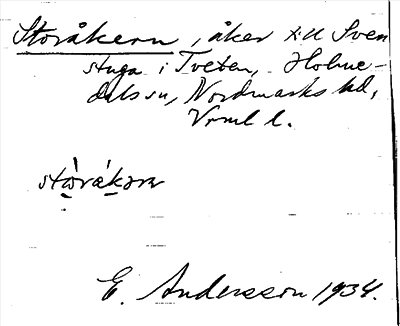 Storåkern, åker till Sven
stuga i Tveten, Holme-
dals sn, Nordmarks hd,
Vrml l.
stòråkərn
E. Andersson 1934.